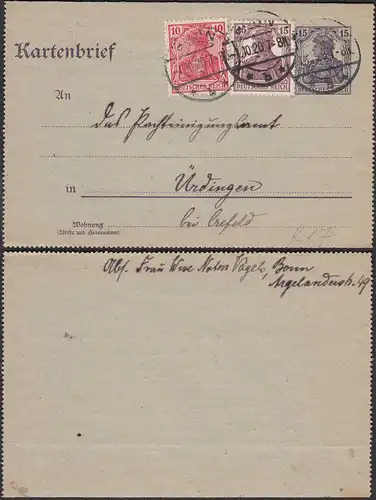 10 15 15
DEUTSCHES REICH DEUTSCHES REICH
10.20
* b *
Kartenbrief
An
das Pachteinigungsamt
in Ürdingen
bei Crefeld
Wohnung
(Straße und Hausnummer)
Abs. Frau Wwe Notar Vogels, Bonn
Argelanderstr. 49